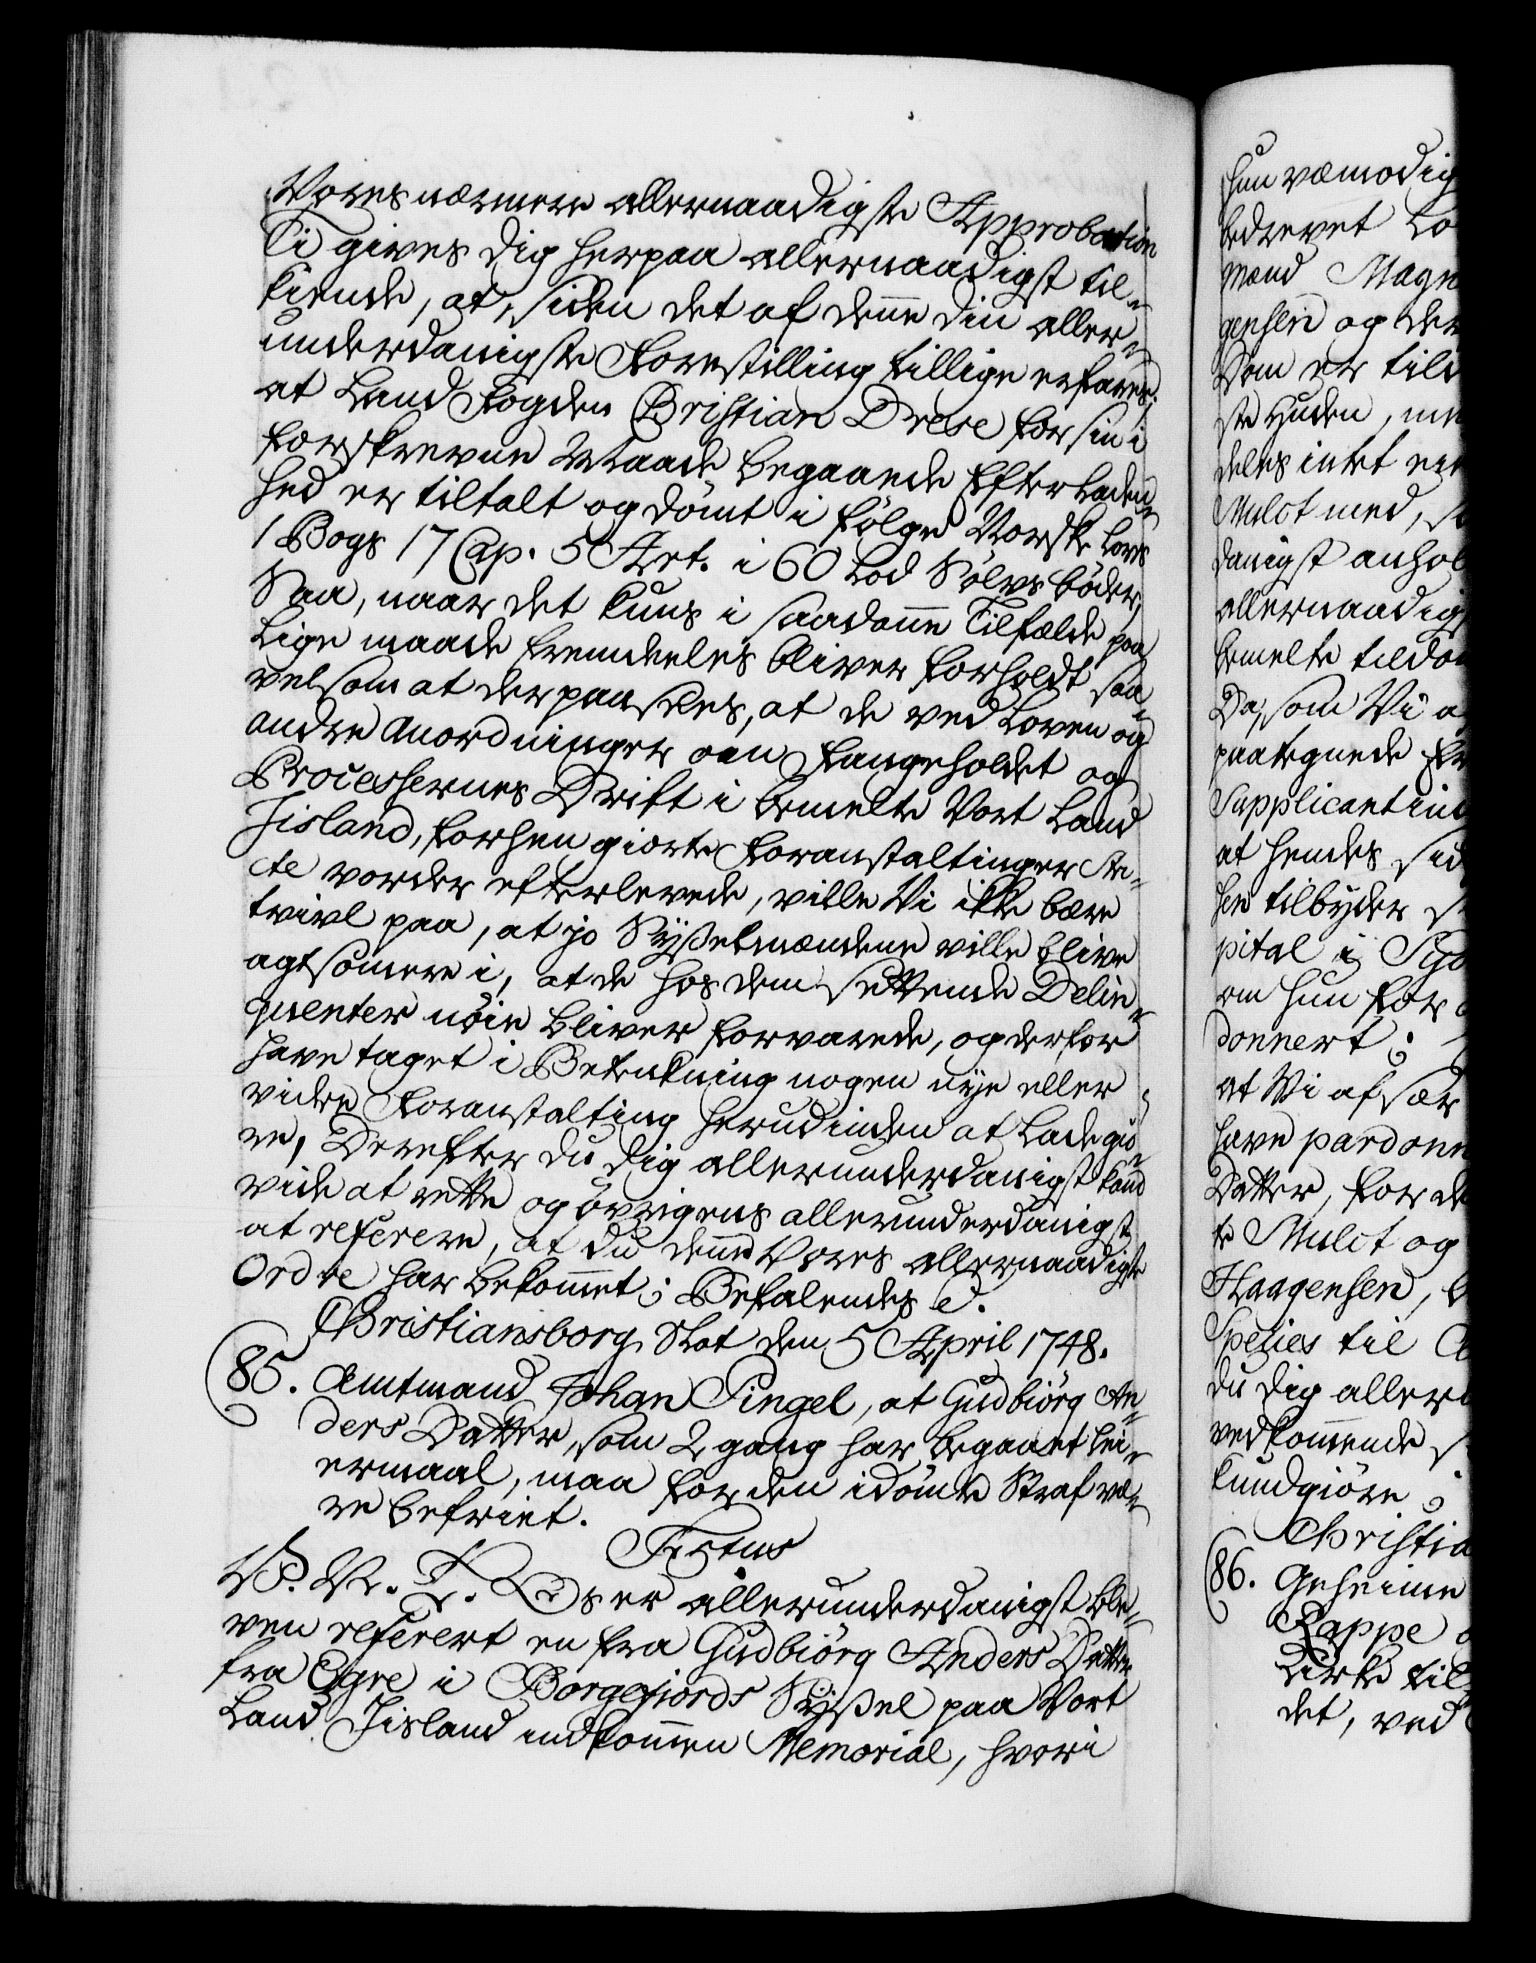 Vores nærmere allernaadigste Approbation
Ti gives dig herpaa allernaadigst til-
kiende, at, siden det af denne din aller-
underdanigste Forestilling tillige erfares,
at Land Fogden Christian Drese for sin i
forskrevne Maade begaaende Efterladen-
hed er tiltalt og dömt i fölge Norske Lovs
1 Bogs 17 Cap. 5 Art. i 60 Lod Sölvs böder,
Saa, naar det kuns i saadanne Tilfælde paa
lige maade fremdeeles bliver forholdt saa-
vel som at der paasees, at de ved Loven og
andre Anordninger om Fangeholdet og
Processernes Drift i bemelte Vort Land
Jisland, forhen giorte Foranstaltinger stri-
cte vorder efterlevede, ville Vi ikke bære
tvivl paa, at jo Sysselmændene ville blive
agtsommere i, at de hos dem sættende Delin-
quenter nöie bliver forvarede, og derfor
have taget i Betænkning nogen nye eller
videre Foranstalting herudinden at lade giö-
re, Derefter du dig allerunderdanigst kand
vide at rette og övrigens allerunderdanigst
at referere, at du denne Vores allernaadigste
Ordre har bekommet; Befalendes &.
Christiansborg Slot den 5 April 1748.
85. Amtmand Johan Pingel, at Gudbiörg An-
ders Datter, som 2 gang har begaaet Lei-
ermaal, maa for den idömte Straf væ-
re befriet.
Fr: 5tus
V. V. T. Os er allerunderdanigst ble-
ven refereret en fra Gudbiörg Anders Datter
fra Ogre i Borgefiords Syssel paa Vort
Land Jisland indkommen Memorial, hvori
hun vemodig
bedrevet Le
mand Magn
gensen og der
Dom er tild
ste Huden, me
deles intet ei
Mulct med, s
danigst anhol
allernaadigs
bemelte tildö
Da, som Vi a
paategnede Er
Supplicantin
at hendes sid
hen tilbyder s
pital i
om hun for
donnert;
at Vi af sær
have pardonn
Datter, for de
te Mulct og
Haagensen, b
Species til
du dig aller
vedkommende
kundgiöre;
Christia
86. Geheime
Rappe
Kirke til
det, ved